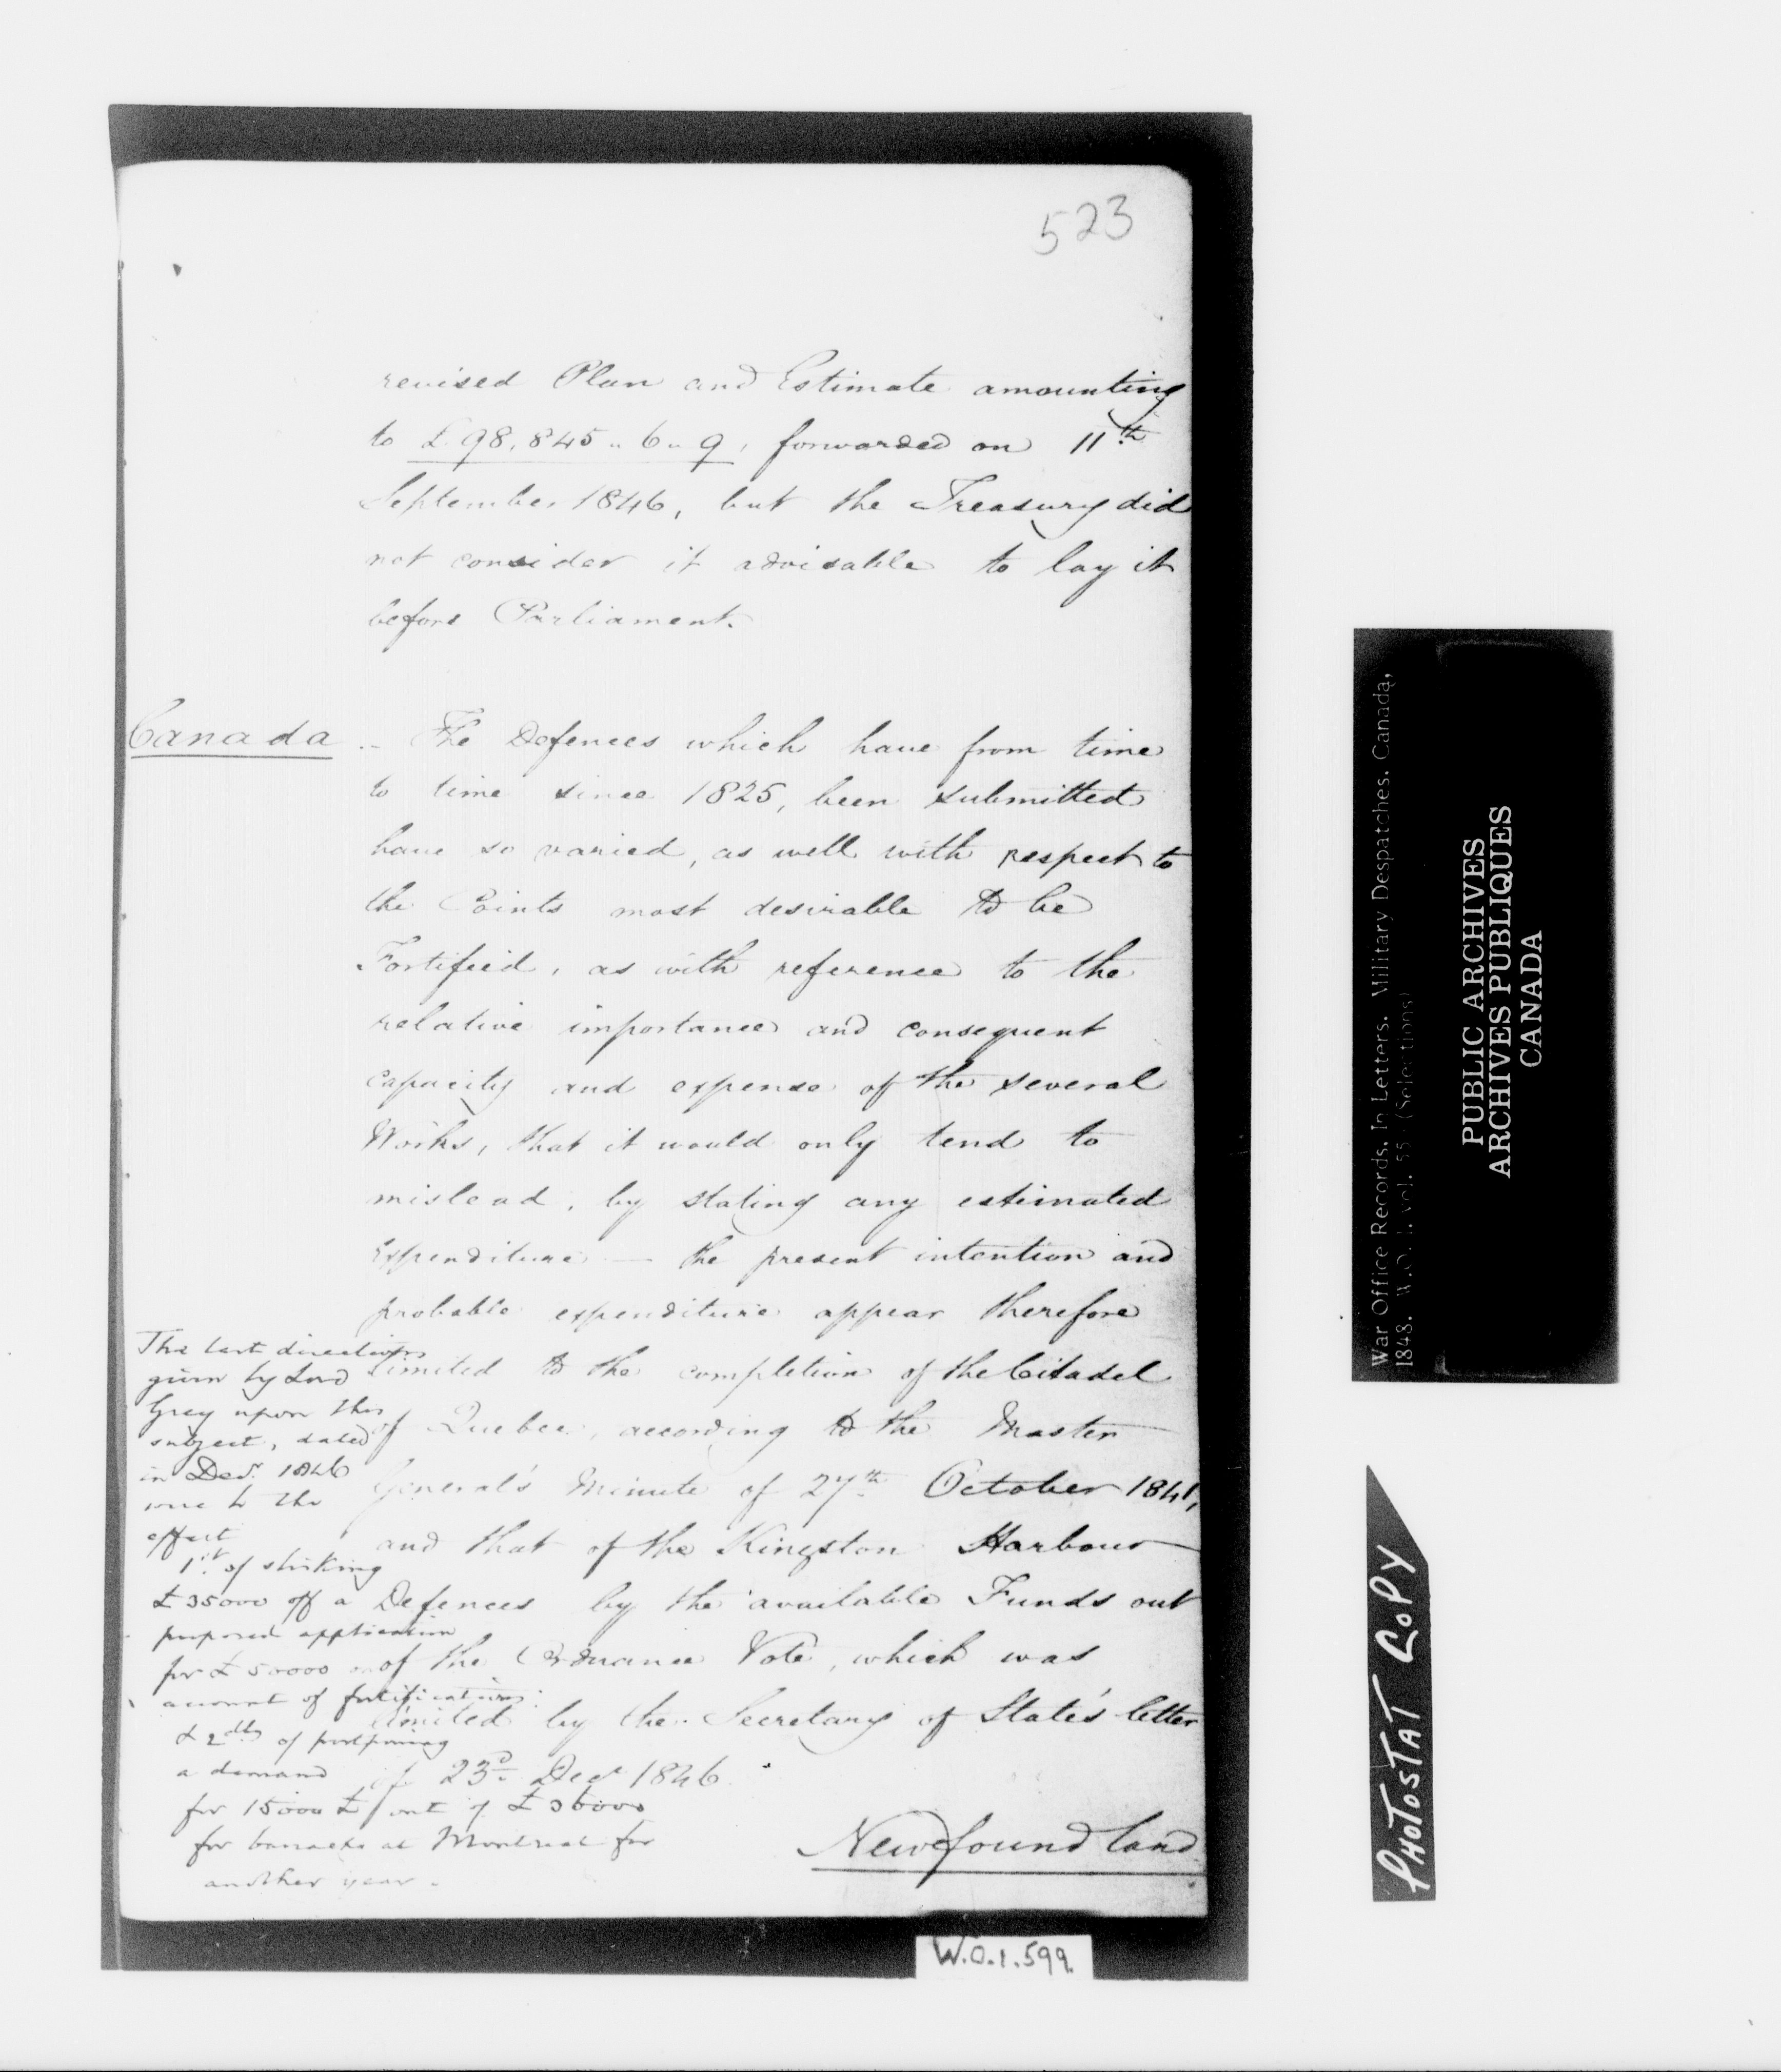 523
revised Plan and Estimate amounting
to £98,845 " 6 " 9, forwarded on 11th
September 1846, but the Treasury did
not consider it advisable to lay it
before Parliament.
Canada .- The Defences which have from time
to time since 1825, been submitted
have so varied, as well with respect to
the Points most desirable to be
Fortified, as with reference to the
relative importance and consequent
capacity and expense of the several
Works, that it would only tend to
mislead, by stating any estimated
Expenditure — the present intention and
probable expenditure appear therefore
limited to the completion of the Citadel
of Quebec, according to the Master
General's Minute of 27th October 1841,
and that of the Kingston Harbour
Defences by the available Funds out
of the Ordnance Vote, which was
limited by the Secretary of State's letter
of 23d Decr 1846.
The last directions
given by Lord
Grey upon this
subject, dated
in Decr. 1846
were to the
effect
1st. of striking
£35000 off a
proposed application
for £50000 on
account of fortifications:
& 2dly of postponing
a demand
for 15000£ out of £36000
for barracks at Montreal for
another year.
Newfoundland
W.O.1.599.
War Office Records. In Letters. Military Despatches. Canada,
1848. W.O. 1, vol. 55 (Selections)
PUBLIC ARCHIVES
ARCHIVES PUBLIQUES
CANADA
PHOTOSTAT COPY